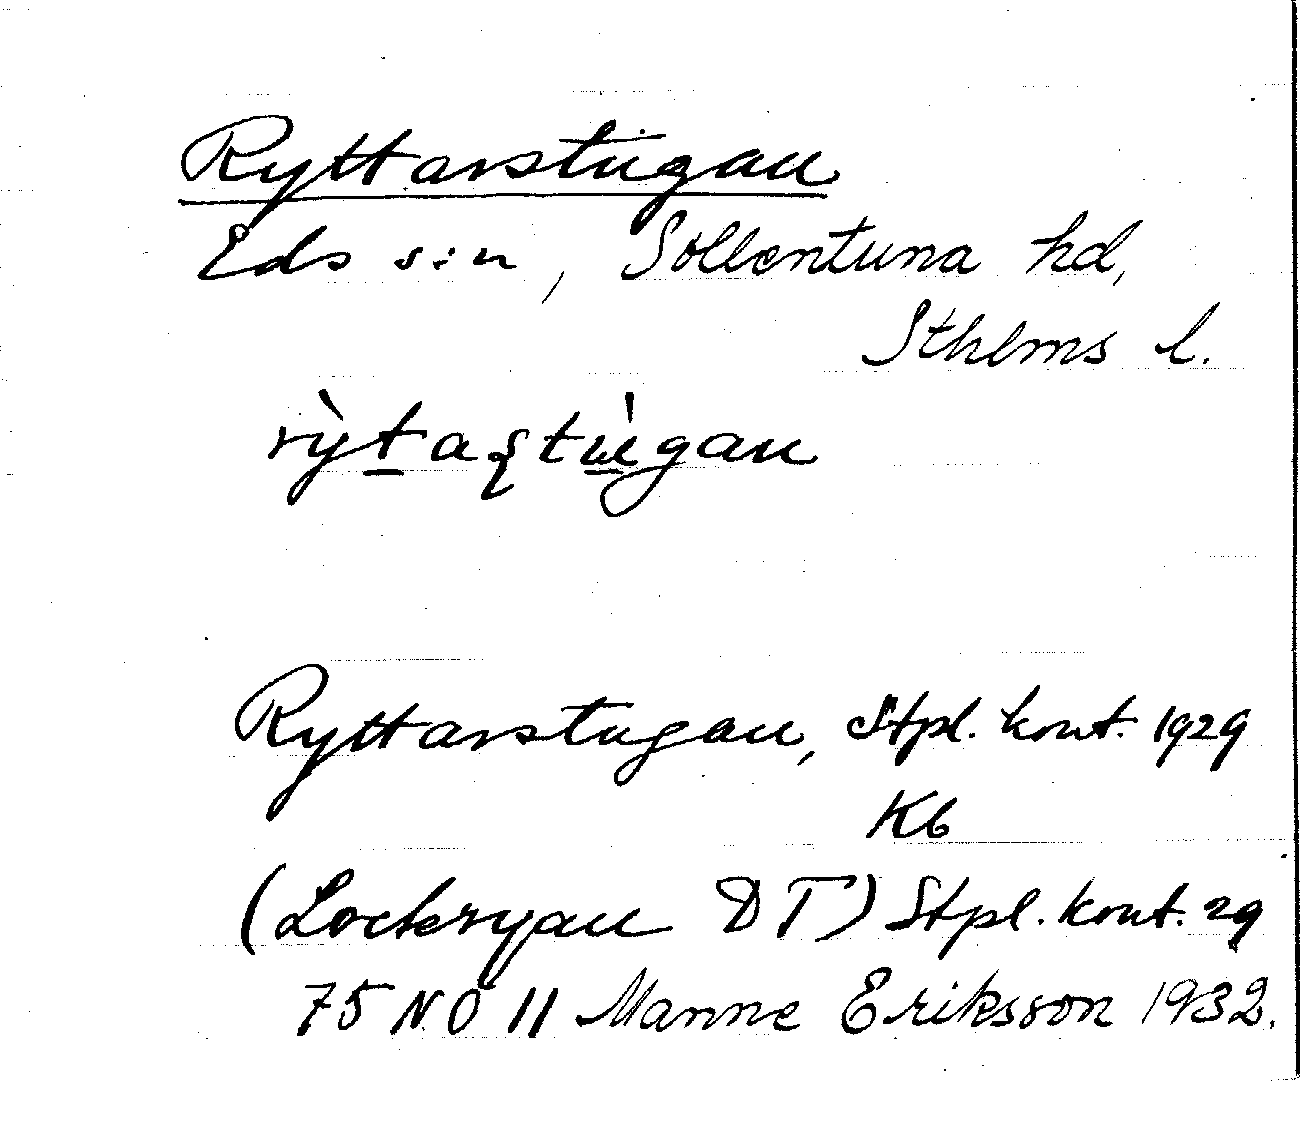 Ryttarstugan
Eds s:n, Sollentuna hd,
Sthlms l.
Ryttarstugan, Stpl. kont. 1929
Kb
(Lockryan DT) Stpl. kont. 29
75 N.O 11 Manne Eriksson 1932.